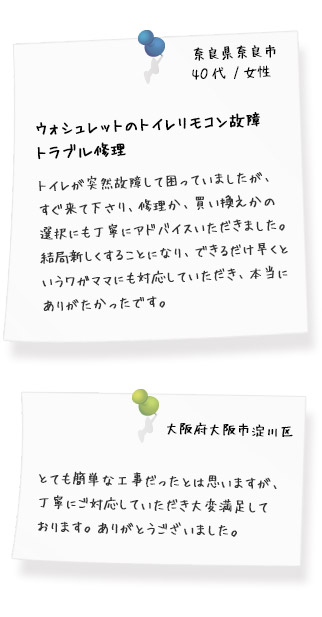 奈良県奈良市
40代 / 女性
ウォシュレットのトイレリモコン故障
トラブル修理
トイレが突然故障して困っていましたが、
すぐ来て下さり、修理か、買い換えかの
選択にも丁寧にアドバイスいただきました。
結局新しくすることになり、できるだけ早くと
いうワガママにも対応していただき、本当に
ありがたかったです。
大阪府大阪市淀川区
とても簡単な工事だったとは思いますが、
丁寧にご対応していただき大変満足して
おります。ありがとうございました。